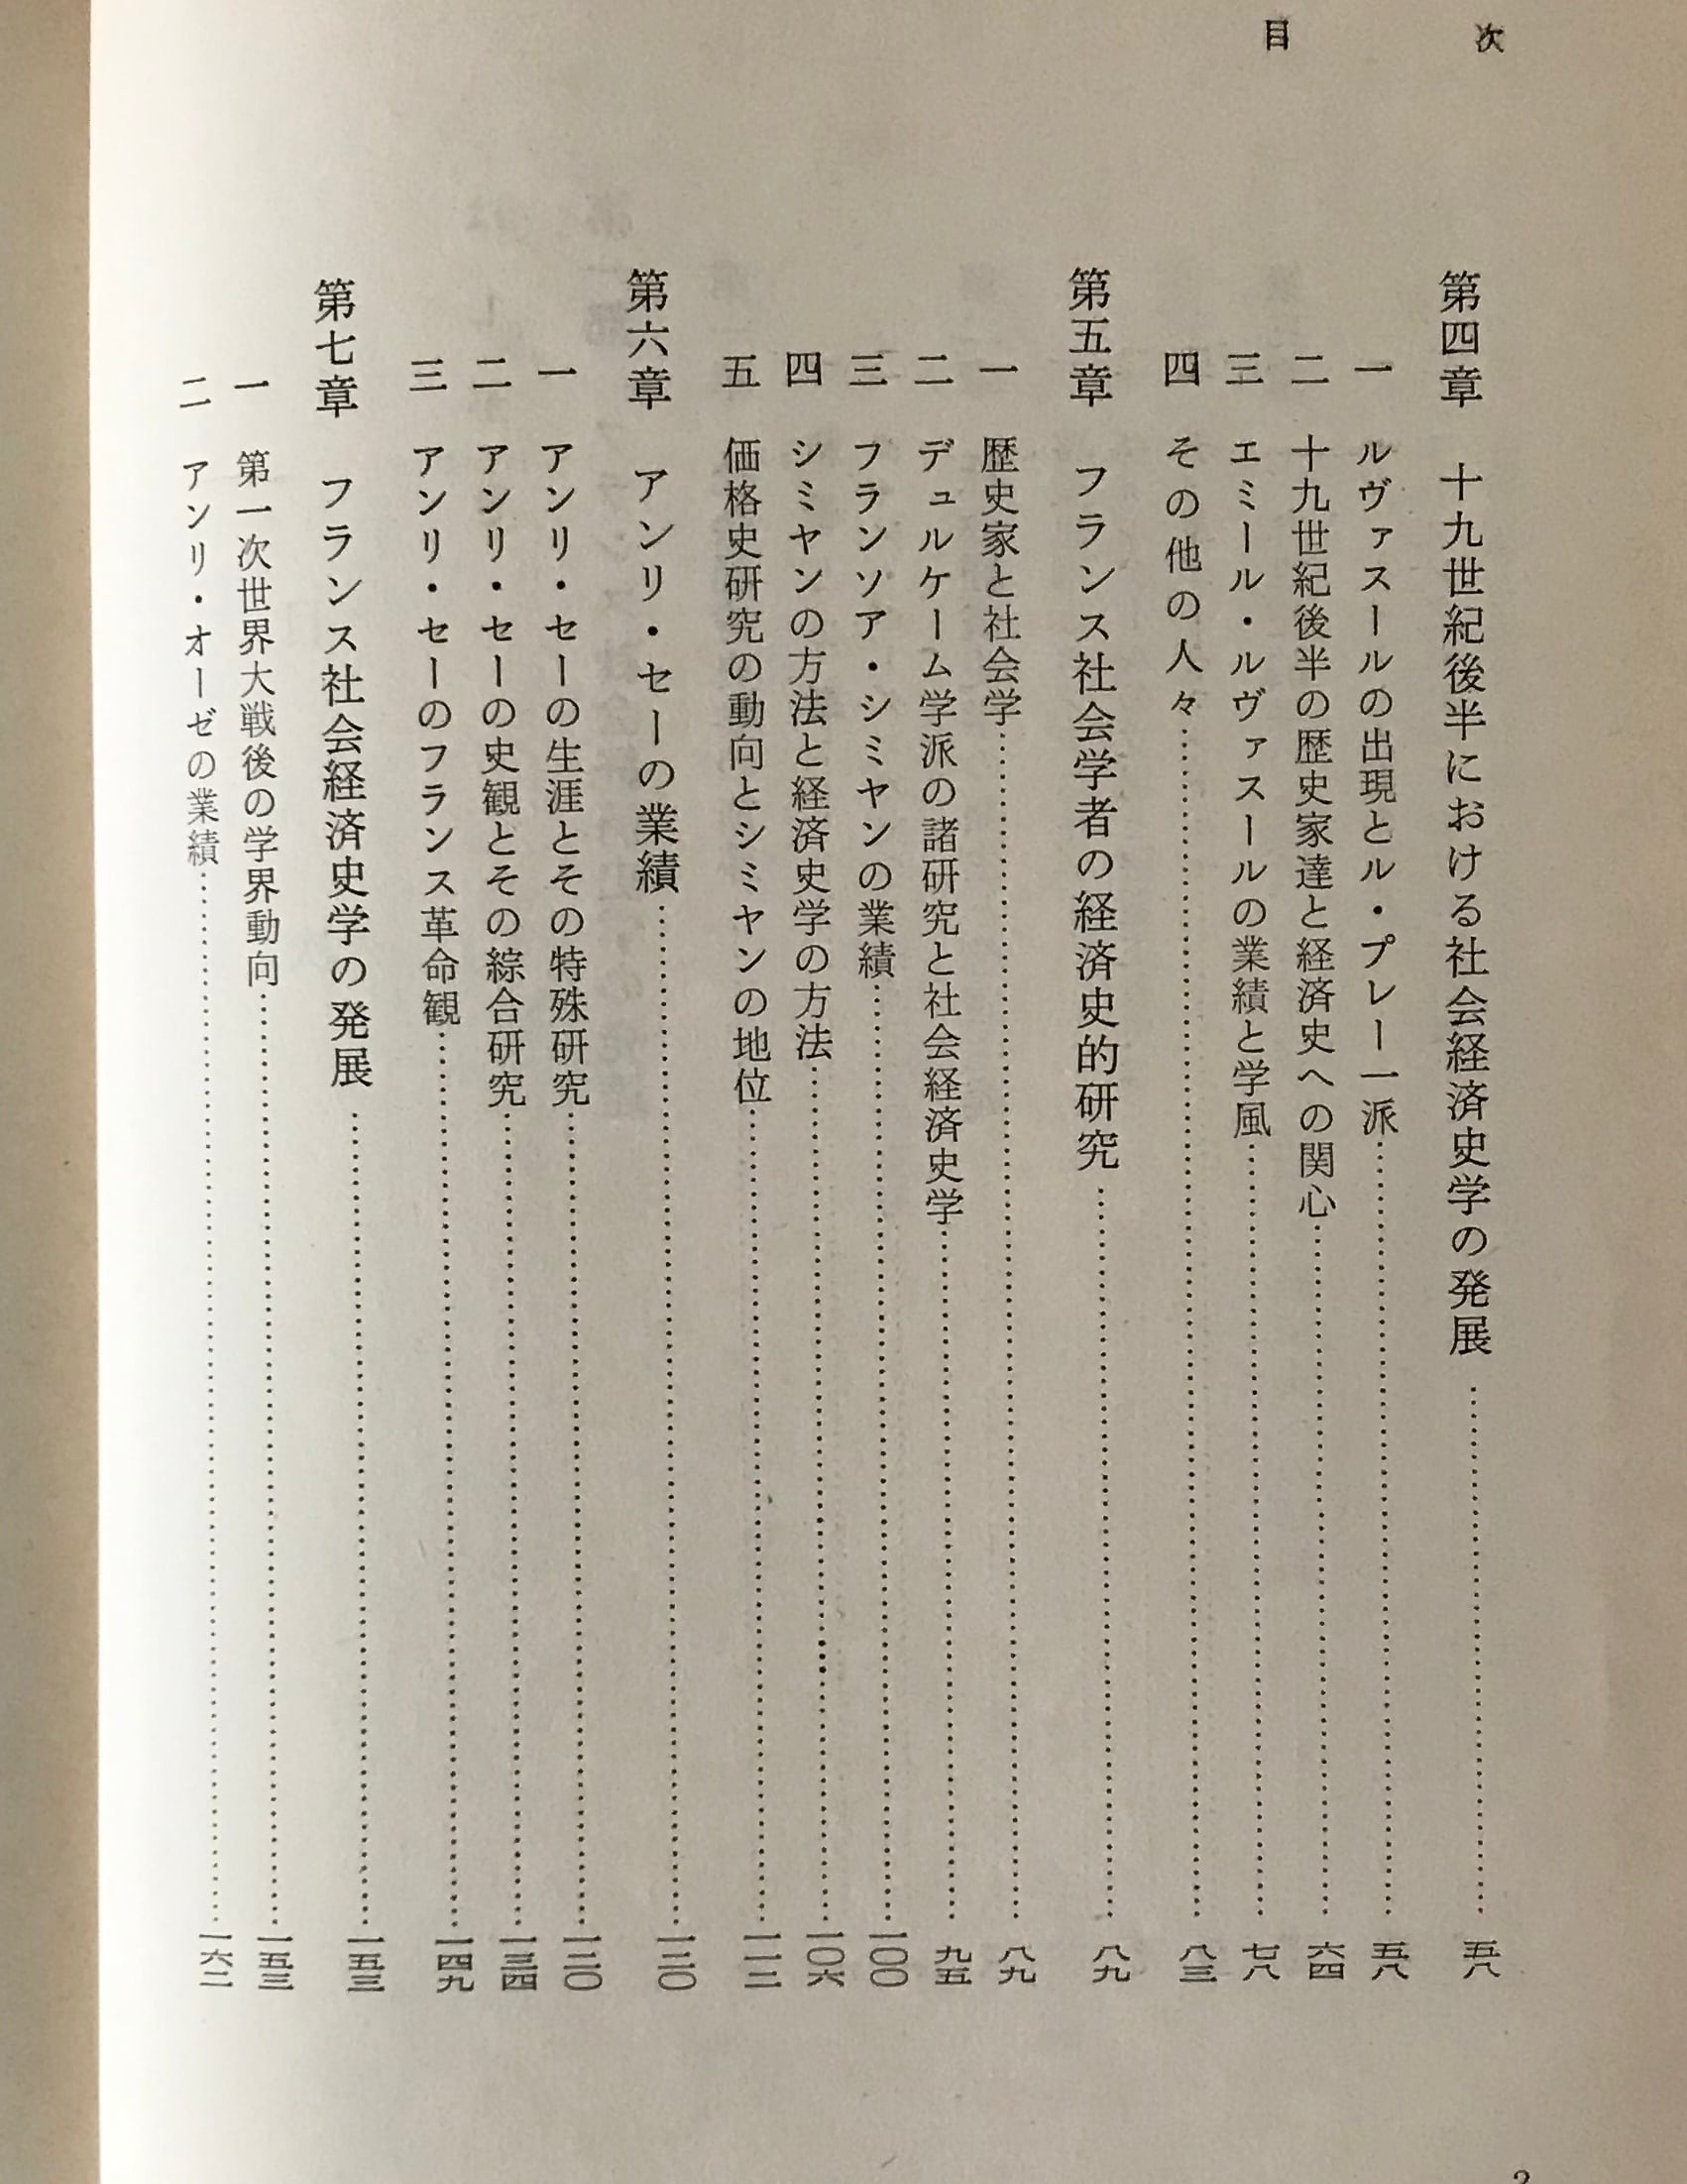 目次
第四章　十九世紀後半における社会経済史学の発展……五八
一　ルヴァスールの出現とル・プレー一派……五八
二　十九世紀後半の歴史家達と経済史への関心……六四
三　エミール・ルヴァスールの業績と学風……七八
四　その他の人々……八三
第五章　フランス社会学者の経済史的研究……八九
一　歴史家と社会学……八九
二　デュルケーム学派の諸研究と社会経済史学……九五
三　フランソア・シミヤンの業績……一〇〇
四　シミヤンの方法と経済史学の方法……一〇六
五　価格史研究の動向とシミヤンの地位……一一二
第六章　アンリ・セーの業績……一二〇
一　アンリ・セーの生涯とその特殊研究……一二〇
二　アンリ・セーの史観とその綜合研究……一三四
三　アンリ・セーのフランス革命観……一四九
第七章　フランス社会経済史学の発展……一五三
一　第一次世界大戦後の学界動向……一五三
二　アンリ・オーゼの業績……一六二